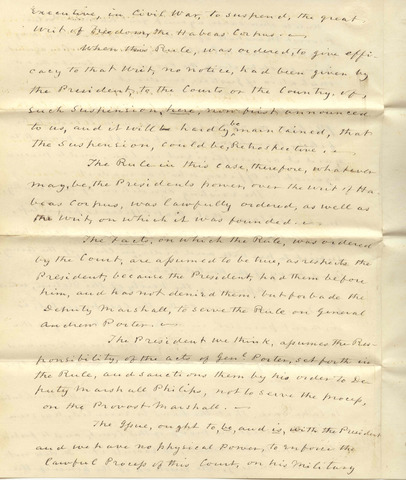 Executive, in Civil War, to suspend, the great
Writ of freedom, the Habeas Corpus. –
When this Rule, was ordered, to give effi-
cacy to that Writ, no notice, had been given by
the President, to the Courts or the Country, of
Such Suspension, here, now first announced
to us, and it will hardly be maintained, that
the Suspension, could be, Retrospective. –
The Rule in this case, therefore, whatever
may, be, the Presidents power, over the writ of Ha-
beas Corpus, was lawfully ordered, as well as
the Writ, on which it was founded. –
The facts, on which the Rule, was ordered
by the Court, are assumed to be true, as respects the
President, because the President, had them before
him, and has not denied them, but forbade the
Deputy Marshall, to serve the Rule on General
Andrew Porter. –
The President we think, assumes the Res-
ponsibility, of the acts of Genl. Porter, set forth in
the Rule, and sanctions them by his order to De-
puty Marshall Philips, not to serve the process,
on the Provost Marshall. –
The Issue, ought to be, and is, with the President
and we have no physical Power, to Enforce the
Lawful Process of this Court, on his Military